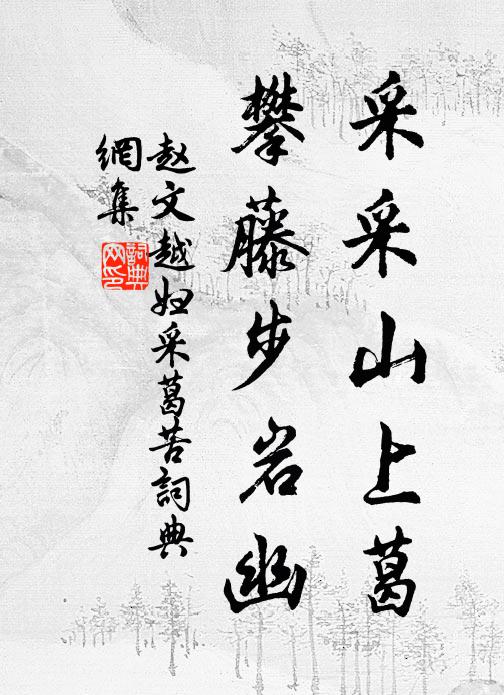 采采山上葛
攀藤步岩幽
赵文越妇采葛苦詞典
網集
詞典
网印